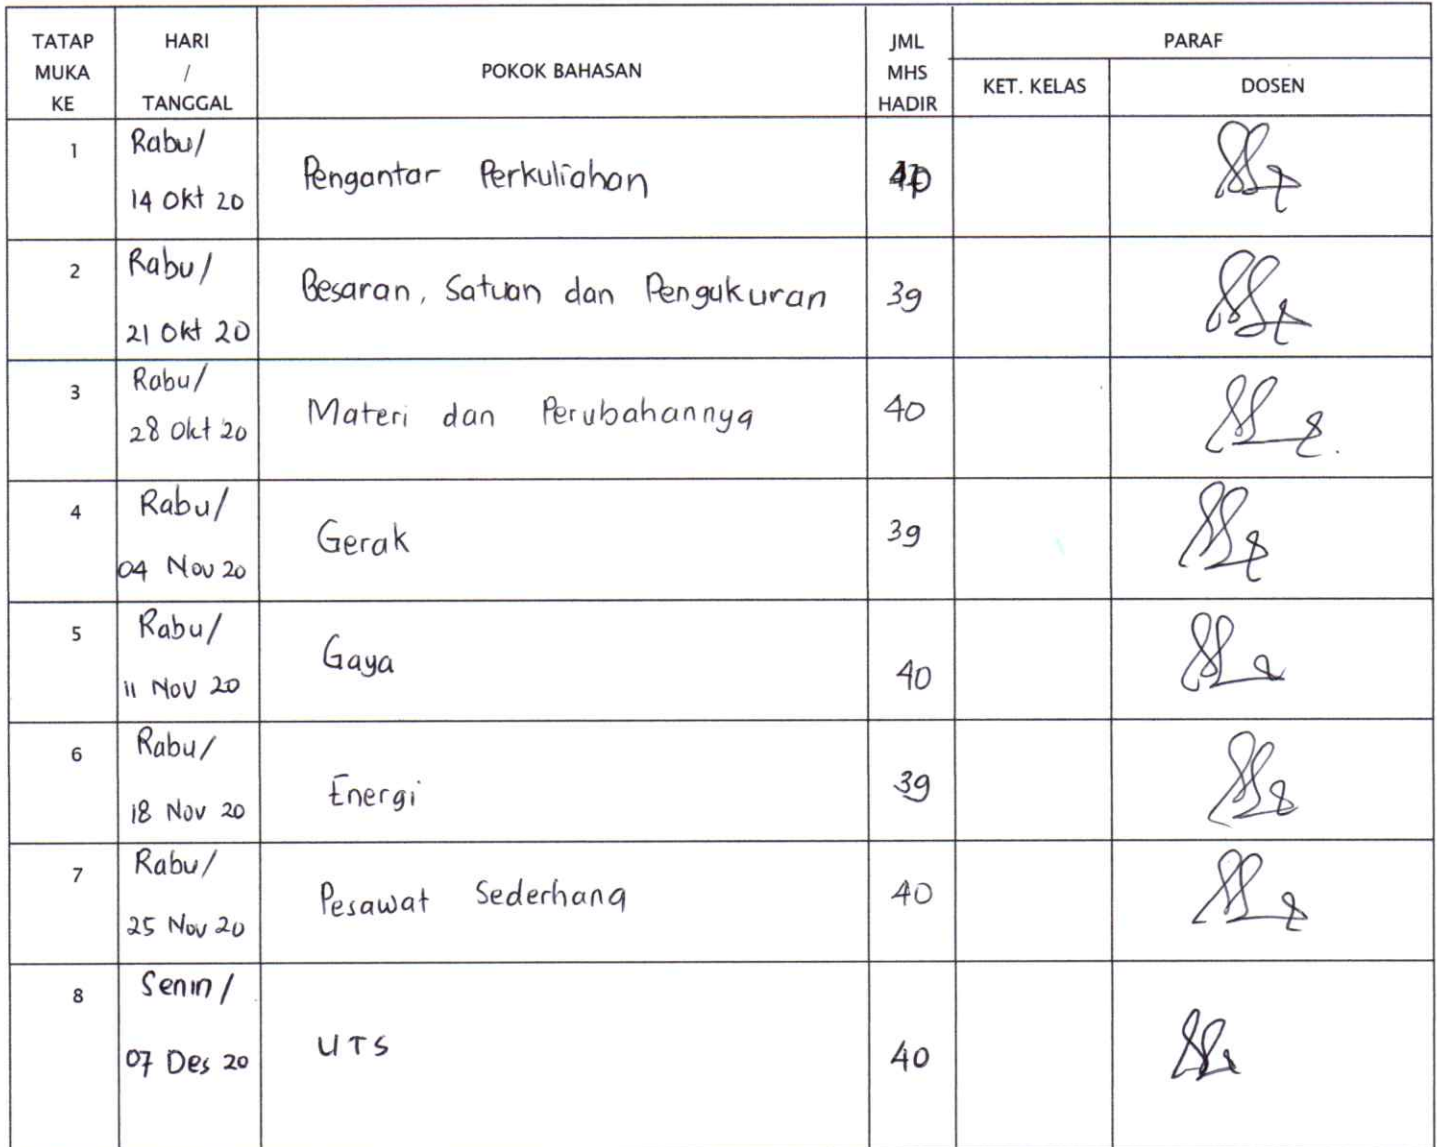 TATAP MUKA KE
HARI / TANGGAL
POKOK BAHASAN
JML MHS HADIR
PARAF
KET. KELAS
DOSEN
1
Rabu/
14 Okt 20
Pengantar Perkuliahan
2
Rabu/
21 Okt 20
Besaran, Satuan dan Pengukuran
39
3
Rabu/
28 Okt 20
Materi dan Perubahannya
40
4
Rabu/
04 Nov 20
Gerak
39
5
Rabu/
11 Nov 20
Gaya
40
6
Rabu/
18 Nov 20
Energi
39
7
Rabu/
25 Nov 20
Pesawat Sederhana
40
8
Senin/
07 Des 20
UTS
40